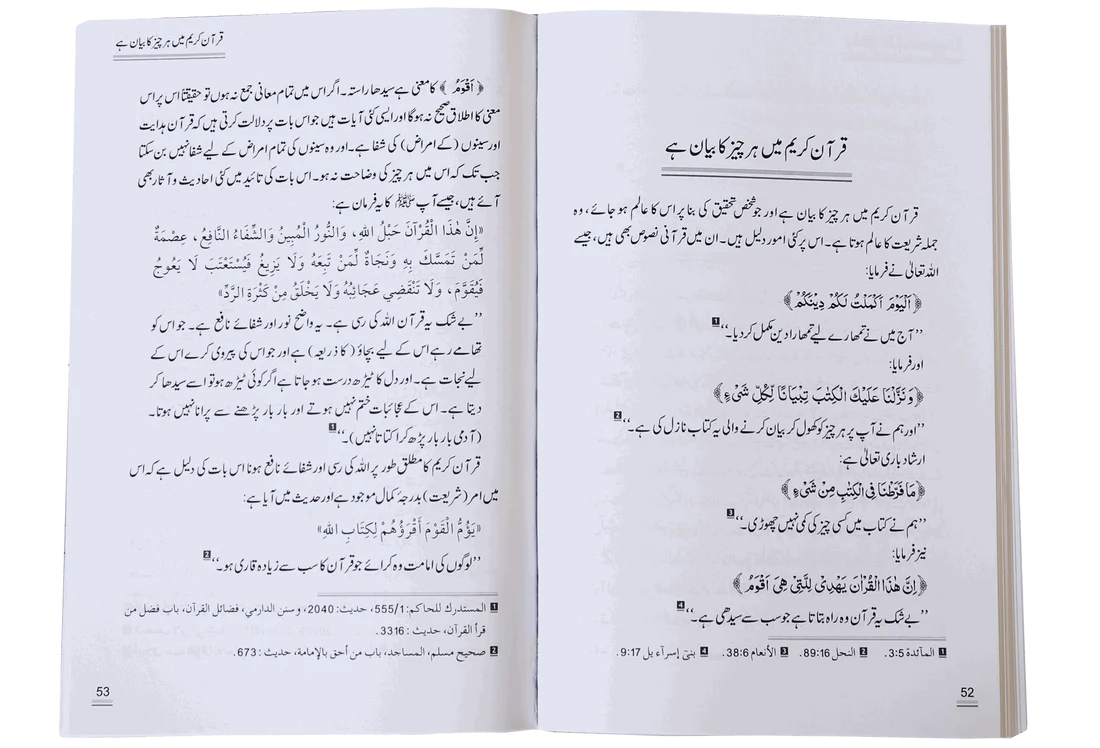 قرآن کریم میں ہر چیز کا بیان ہے
قرآن کریم میں ہر چیز کا بیان ہے اور جو شخص تحقیق کی بنا پر اس کا عالم ہو جائے، وہ
جملہ شریعت کا عالم ہوتا ہے۔ اس پر کئی امور دلیل ہیں۔ ان میں قرآنی نصوص بھی ہیں، جیسے
اللہ تعالیٰ نے فرمایا:
﴿اَلْيَوْمَ اَكْمَلْتُ لَكُمْ دِيْنَكُمْ﴾
’’آج میں نے تمھارے لیے تمھارا دین مکمل کر دیا۔‘‘ 1
اور فرمایا:
﴿وَنَزَّلْنَا عَلَيْكَ الْكِتٰبَ تِبْيَانًا لِّكُلِّ شَيْءٍ﴾
’’اور ہم نے آپ پر ہر چیز کو کھول کر بیان کرنے والی یہ کتاب نازل کی ہے۔‘‘ 2
ارشاد باری تعالیٰ ہے:
﴿مَا فَرَّطْنَا فِي الْكِتٰبِ مِنْ شَيْءٍ﴾
’’ہم نے کتاب میں کسی چیز کی کمی نہیں چھوڑی۔‘‘ 3
نیز فرمایا:
﴿اِنَّ هٰذَا الْقُرْاٰنَ يَهْدِيْ لِلَّتِيْ هِيَ اَقْوَمُ﴾
’’بے شک یہ قرآن وہ راہ بتاتا ہے جو سب سے سیدھی ہے۔‘‘ 4
1 المآئدة 3:5. 2 النحل 89:16. 3 الأنعام 38:6. 4 بنيٓ إسرآءيل 9:17.
52
قرآن کریم میں ہر چیز کا بیان ہے
﴿اَقْوَمُ﴾ کا معنی ہے سیدھا راستہ۔ اگر اس میں تمام معانی جمع نہ ہوں تو حقیقتاً اس پر اس
معنی کا اطلاق صحیح نہ ہوگا اور ایسی کئی آیات ہیں جو اس بات پر دلالت کرتی ہیں کہ قرآن ہدایت
اور سینوں (کے امراض) کی شفا ہے۔ اور وہ سینوں کی تمام امراض کے لیے شفا نہیں بن سکتا
جب تک کہ اس میں ہر چیز کی وضاحت نہ ہو۔ اس بات کی تائید میں کئی احادیث و آثار بھی
آئے ہیں، جیسے آپ ﷺ کا یہ فرمان ہے:
«إِنَّ هٰذَا الْقُرْآنَ حَبْلُ اللهِ، وَالنُّورُ الْمُبِينُ وَالشِّفَاءُ النَّافِعُ، عِصْمَةٌ
لِّمَنْ تَمَسَّكَ بِهِ وَنَجَاةٌ لِّمَنْ تَبِعَهُ وَلَا يَزِيغُ فَيُسْتَعْتَبَ لَا يَعْوَجُّ
فَيُقَوَّمَ، وَلَا تَنْقَضِي عَجَائِبُهُ وَلَا يَخْلَقُ مِنْ كَثْرَةِ الرَّدِّ»
’’بے شک یہ قرآن اللہ کی رسی ہے۔ یہ واضح نور اور شفائے نافع ہے۔ جو اس کو
تھامے رہے اس کے لیے بچاؤ (کا ذریعہ) ہے اور جو اس کی پیروی کرے اس کے
لیے نجات ہے۔ اور دل کا ٹیڑھ درست ہو جاتا ہے اگر کوئی ٹیڑھ ہو تو اسے سیدھا کر
دیتا ہے۔ اس کے عجائبات ختم نہیں ہوتے اور بار بار پڑھنے سے پرانا نہیں ہوتا۔
(آدمی بار بار پڑھ کر اکتاتا نہیں)۔‘‘ 1
قرآن کریم کا مطلق طور پر اللہ کی رسی اور شفائے نافع ہونا اس بات کی دلیل ہے کہ اس
میں امر (شریعت) بدرجۂ کمال موجود ہے اور حدیث میں آیا ہے:
«يَؤُمُّ الْقَوْمَ أَقْرَؤُهُمْ لِكِتَابِ اللهِ»
’’لوگوں کی امامت وہ کرائے جو قرآن کا سب سے زیادہ قاری ہو۔‘‘ 2
1 المستدرك للحاكم: 555/1، حديث: 2040، وسنن الدارمي، فضائل القرآن، باب فضل من
قرأ القرآن، حديث: 3316.
2 صحيح مسلم، المساجد، باب من أحق بالإمامة، حديث: 673.
53